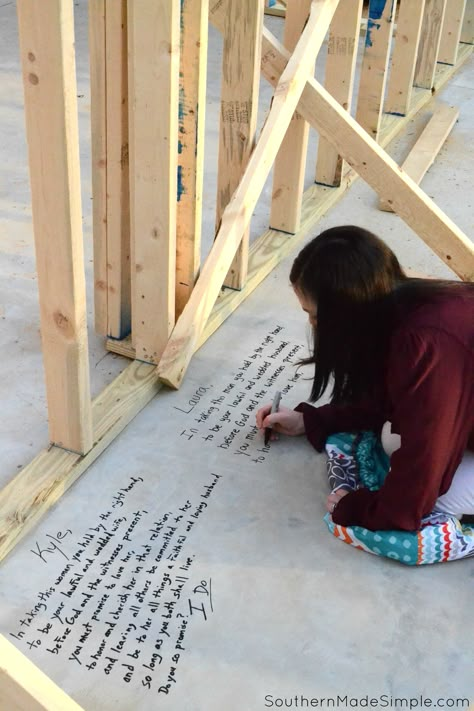 Laura,
In taking this man you hold by the right hand
to be your lawful and wedded husband,
before God and the witnesses present,
you must love him,
to ho
Kyle,
In taking this woman, you hold by the right hand,
to be your lawful and wedded wife,
before God and the witnesses present,
you must promise to love her,
to honor and cherish her in that relation,
and leaving all others be committed to her
and be to her all things a faithful and loving husband
so long as you both shall live.
Do you so promise?
I Do
SouthernMadeSimple.com